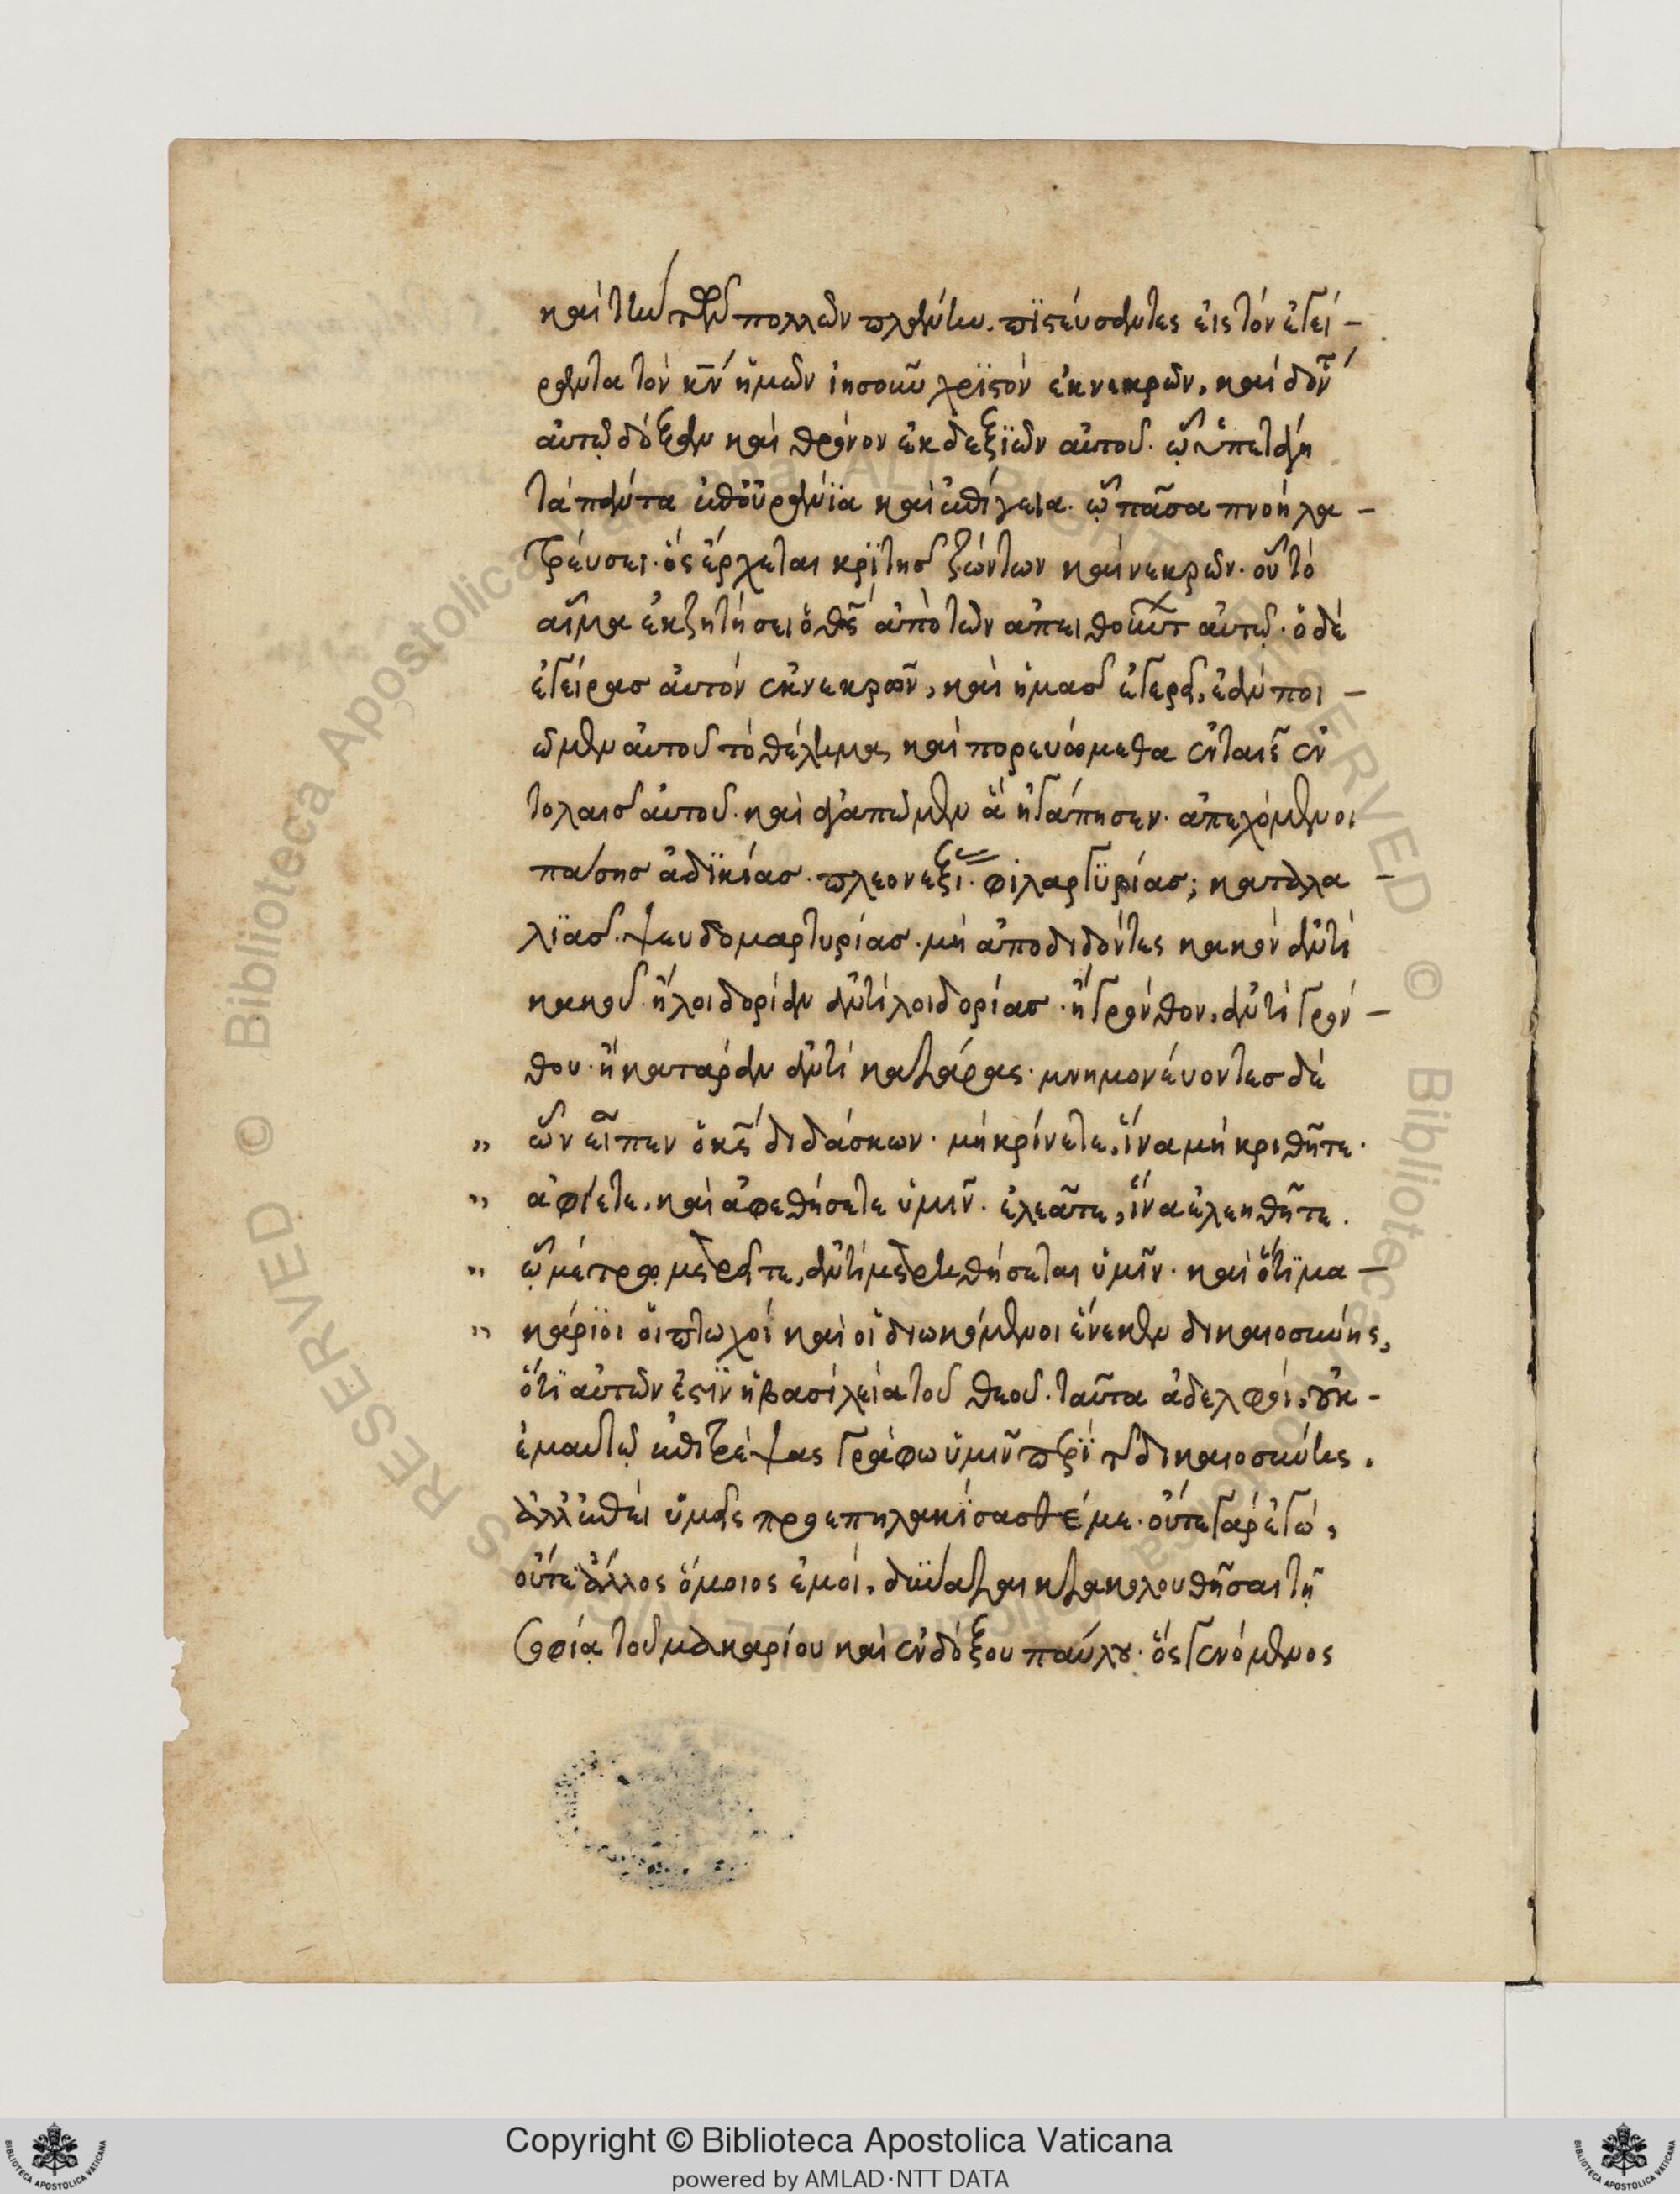 καὶ τὴν τῶν πολλῶν πλάνην. πϊστεύσαντες εἰς τὸν ἐγεί –
ραντα τὸν κ̅ν̅ ἡμῶν ἰησοῦν χρϊστὸν ἐκ νεκρῶν, καὶ δόντ
αὐτῷ δόξαν καὶ θρόνον ἐκ δεξϊῶν αὐτοῦ. ᾧ ὑπετάγη
τὰ πάντα ἐπουράνϊα καὶ ἐπίγεια. ᾧ πᾶσα πνοὴ λα –
τρεύσει. ὃς ἔρχεται κρϊτὴς ζώντων καὶ νεκρῶν. οὗ τὸ
αἷμα ἐκζητήσει ὁ θς ἀπὸ τῶν ἀπειθούντ αὐτῷ. ὁ δὲ
ἐγείρας αὐτὸν ἐκ νεκρῶν, καὶ ἡμᾶς ἐγερεῖ, ἐὰν ποι –
ῶμεν αὐτοῦ τὸ θέλημα, καὶ πορευώμεθα ἐν ταῖς ἐν
τολαῖς αὐτοῦ. καὶ ἀγαπῶμεν ἃ ἠγάπησεν. ἀπεχόμενοι
πάσης ἀδϊκίας. πλεονεξί. φιλαργϋρίας; καταλα –
λϊᾶς. ψευδομαρτυρίας. μὴ ἀποδιδόντες κακὸν ἀντὶ
κακοῦ. ἢ λοιδορίαν ἀντὶ λοιδορίας. ἢ γρόνθον, ἀντὶ γρόν –
θου. ἢ κατάραν ἀντὶ κατάρας. μνημονεύοντες δὲ
„ ὧν εἶπεν ὁ κς διδάσκων. μὴ κρίνετε, ἵνα μὴ κριθῆτε.
„ ἀφίετε, καὶ ἀφεθήσετε ὑμῖν. ἐλεᾶτε, ἵνα ἐλεηθῆτε.
„ ᾧ μέτρῳ μετρεῖτε, ἀντιμετρηθήσεται ὑμῖν. καὶ ὅτϊ μα –
„ κάρϊοι οἱ πτωχοὶ καὶ οἱ διωκόμενοι ἕνεκεν δικαιοσύνης,
ὅτϊ αὐτῶν ἐστϊν ἡ βασιλεία τοῦ θεοῦ. ταῦτα ἀδελφοί, οὐκ –
ἐμαυτῷ ἐπιτρέψας γράφω ὑμῖν περϊ τῆς δικαιοσύνης.
ἀλλ' ἐπεὶ ὑμεῖς προεπηλακίσασθέ με. οὔτε γὰρ ἐγώ,
οὔτε ἄλλος ὅμοιος ἐμοί, δύναται κατακολουθῆσαι τῇ
σοφίᾳ τοῦ μακαρίου καὶ ἐνδόξου παύλου. ὃς γενόμενος
© Biblioteca Apostolica Vaticana ALL RIGHTS RESERVED © Biblioteca Apostolica Vaticana ALL RIGHTS RESERVED
Copyright © Biblioteca Apostolica Vaticana
powered by AMLAD·NTT DATA
BIBLIOTECA APOSTOLICA VATICANA
BIBLIOTECA APOSTOLICA VATICANA